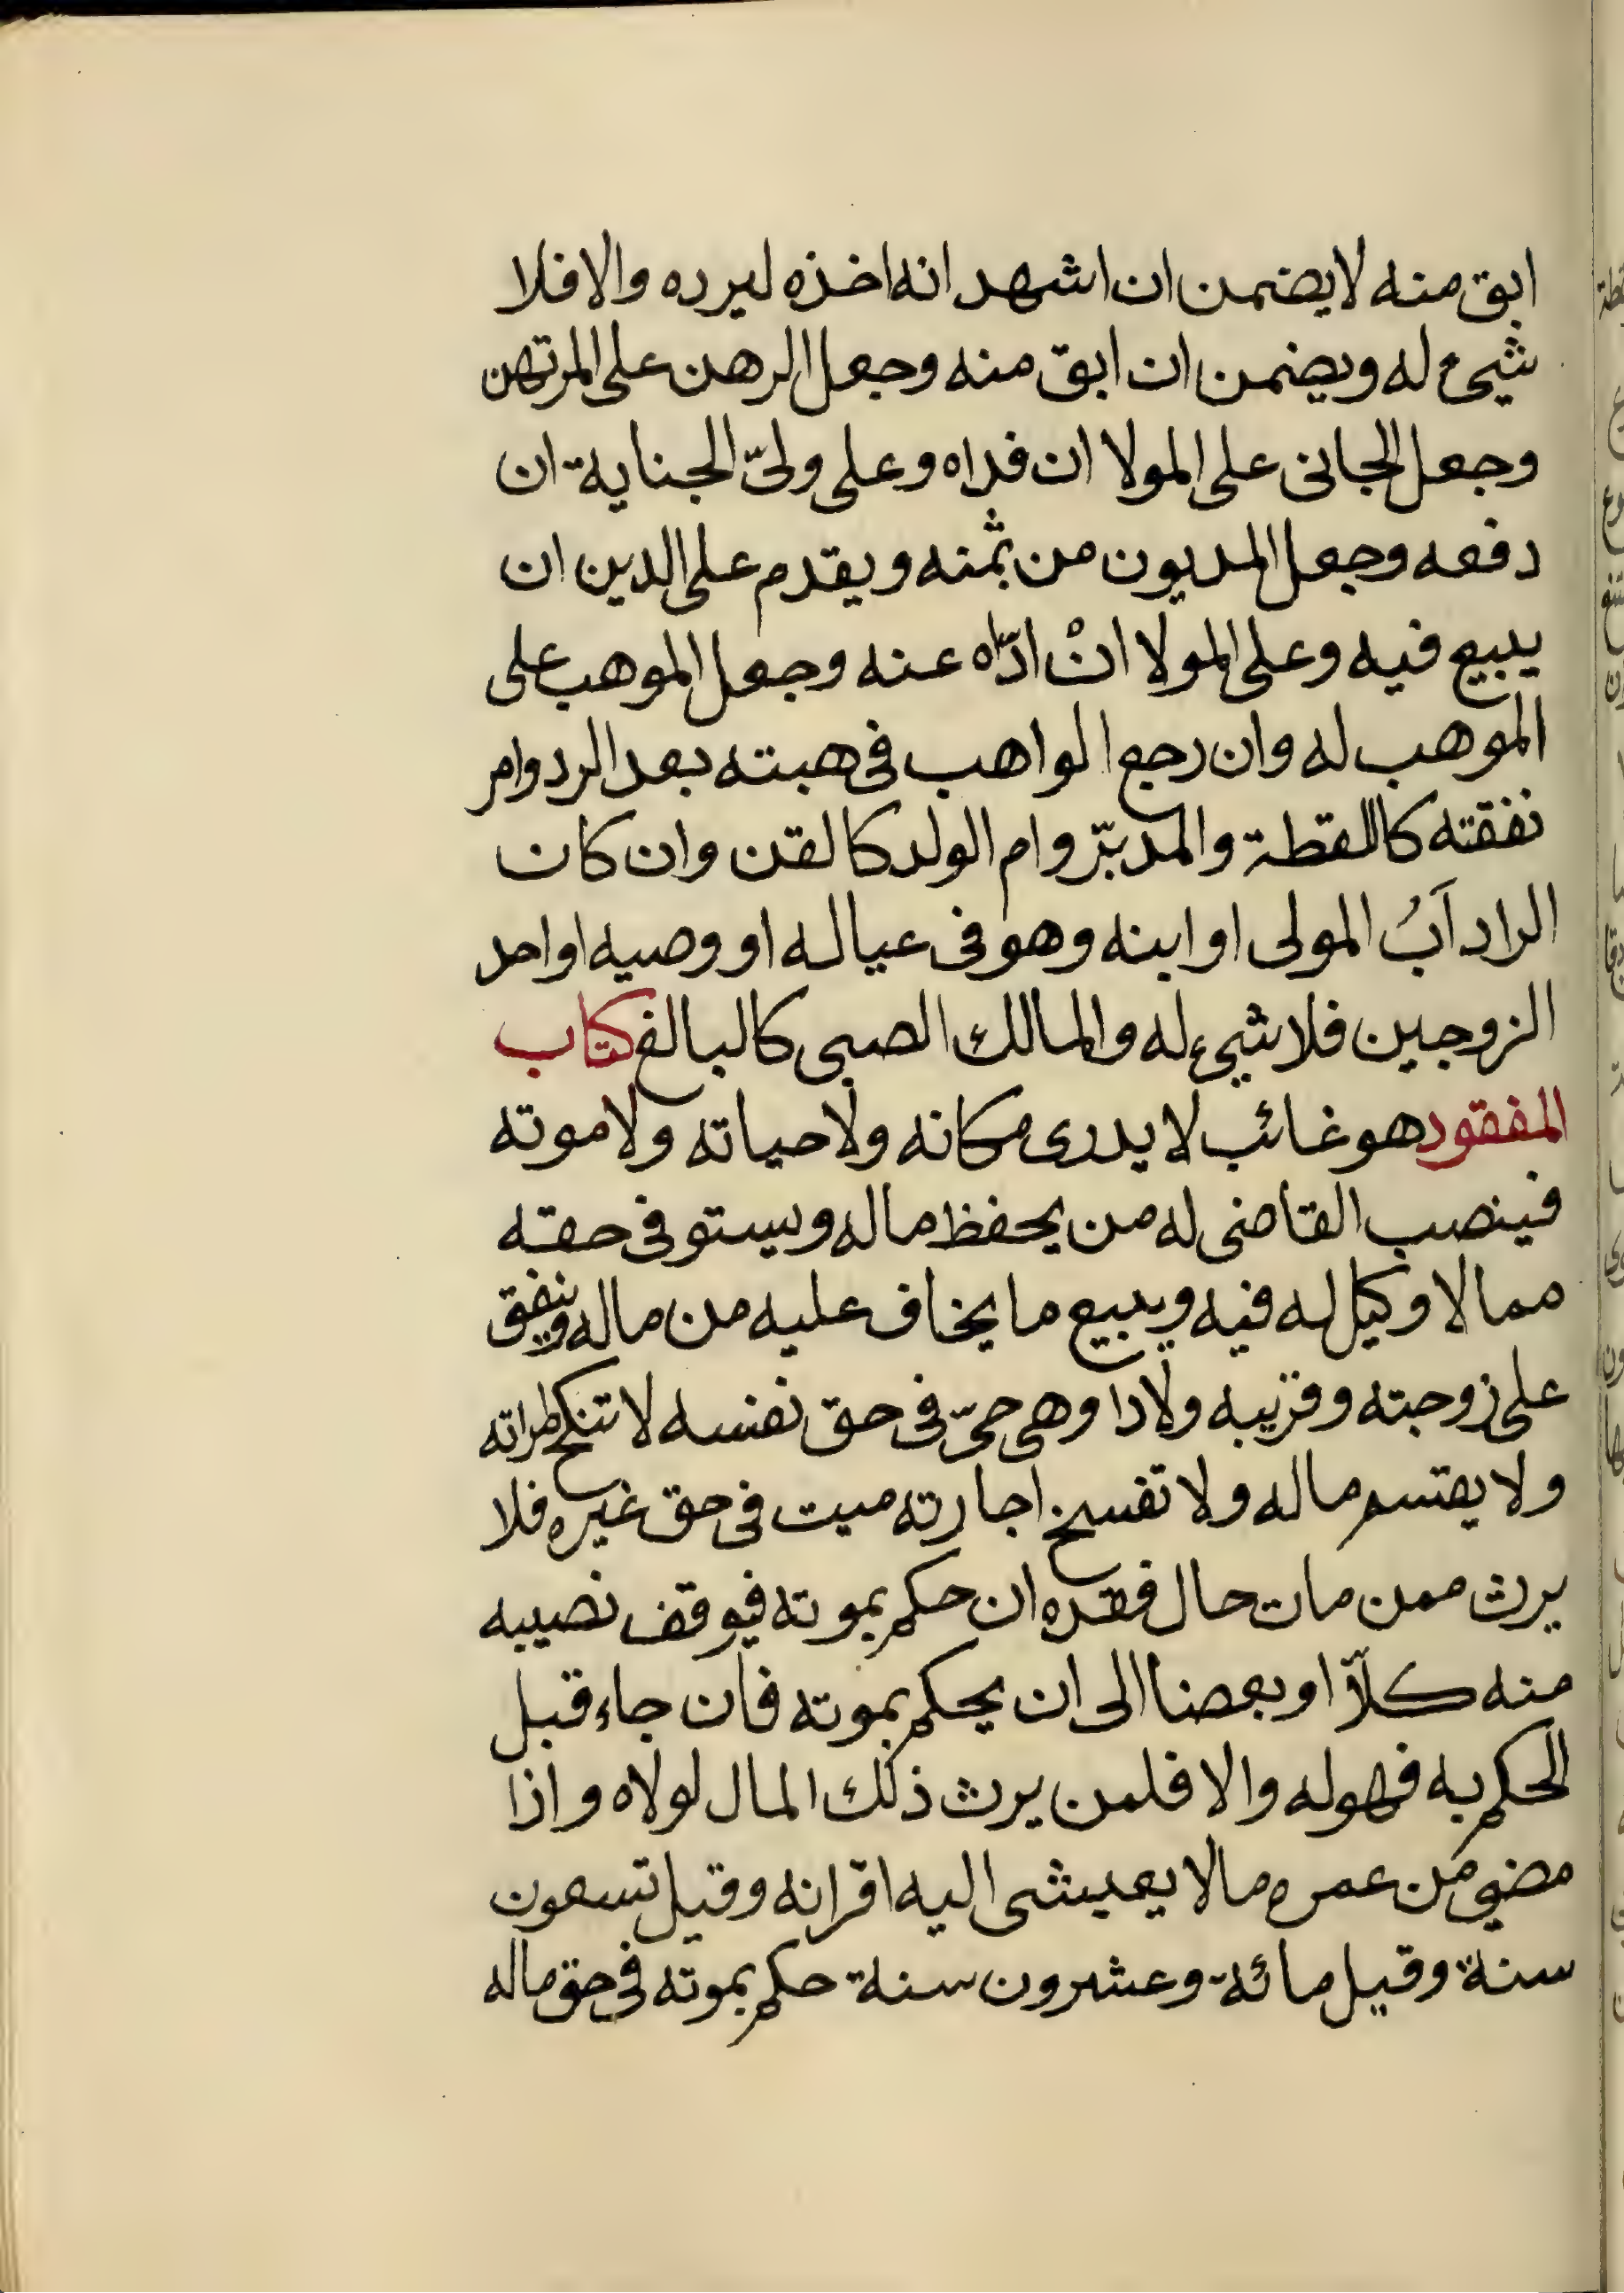 ابق منه لا يضمن ان اشهد انه اخذه ليرده والا فلا
شيئ له ويضمن ان ابق منه وجعل الرهن على المرتهن
وجعل الجانى على المولا ان فداه وعلى ولىّ الجناية ان
دفعه وجعل المديون من ثمنه ويقدم على الدين ان
يبيع فيه وعلى المولا انْ ادّاه عنه وجعل الموهب على
الموهب له وان رجع الواهب فى هبته بعد الرد وامر
نفقته كاللقطة والمدبّر وام الولد كالقن وان كان
الراد اَبُ المولى او ابنه وهو فى عياله او وصيه او احد
الزوجين فلا شيئ له والمالك الصبى كالبالغ كتاب
المفقود هو غائب لا يدرى مكانه ولا حياته ولا موته
فينصب القاضى له من يحفظ ماله ويستوفى حقه
مما لا وكيل له فيه ويبيع ما يخاف عليه من ماله وينفق
على زوجته وقريبه ولادا وهى حىّ فى حق نفسه لا تنكح
ولا يقتسم ماله ولا تفسخ اجارته ميت فى حق غيره فلا
يرث ممن مات حال فقده ان حكم بموته فيوقف نصيبه
منه كلاّ او بعضا الى ان يحكم بموته فان جاء قبل
الحكم به فهو له والا فلمن يرث ذلك المال لولاه واذا
مضى من عمره ما لا يعيشى اليه اقرانه وقيل تسعون
سنة وقيل مائة وعشرون سنة حكم بموته فى حق ماله